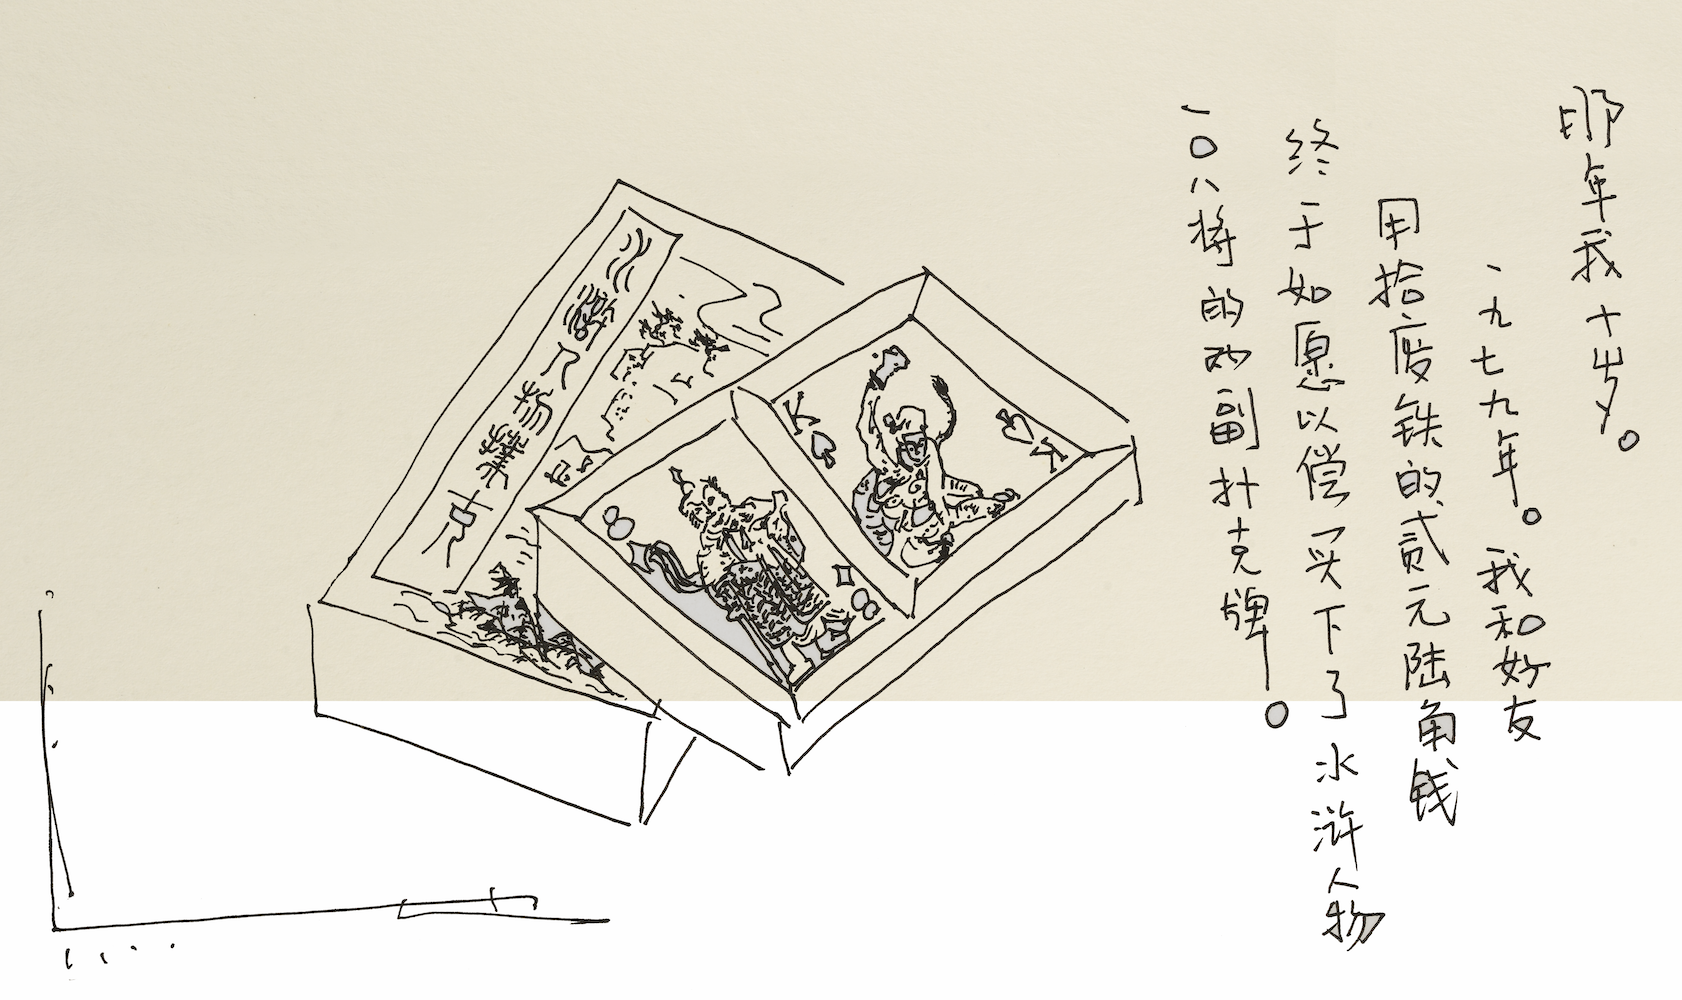 那年我十岁。
一九七九年。我和好友
用拾废铁的贰元陆角钱
终于如愿以偿买下了水浒人物
一〇八将的两副扑克牌。
水浒人物扑克
K
K
8
8